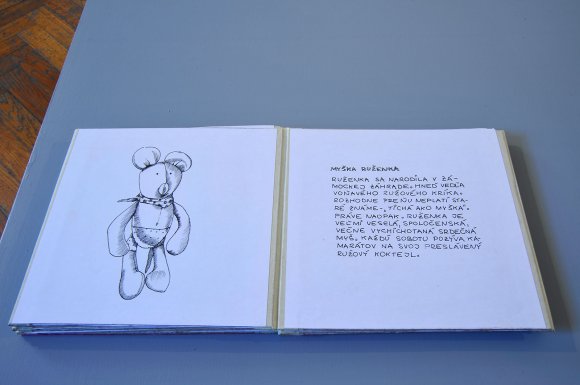 MYŠKA RUŽENKA
RUŽENKA SA NARODILA V ZÁ-
MOCKEJ ZÁHRADE. HNEĎ VEDĽA
VOŇAVÉHO RUŽOVÉHO KRÍKA.
ROZHODNE PRE ŇU NEPLATÍ STA-
RÉ ZNÁME - „TICHÁ AKO MYŠKA".
PRÁVE NAOPAK. RUŽENKA JE
VEĽMI VESELÁ, SPOLOČENSKÁ,
VEČNE VYCHICHOTANÁ SRDEČNÁ
MYŠ. KAŽDÚ SOBOTU POZÝVA KA-
MARÁTOV NA SVOJ PRESLÁVENÝ
RUŽOVÝ KOKTEJL.